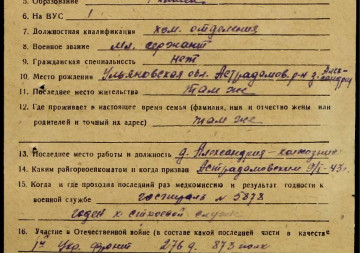 5. Образование
6. На ВУС 1
7. Должностная квалификация ком. отделения
8. Военное звание мл. сержант
9. Гражданская специальность нет
10. Место рождения Ульяновская обл. Астрадамов. р-н д. Алек-
сандрия
11. Последнее место жительства там же
12. Где проживает в настоящее время семья (фамилия, имя и отчество жены или
родителей и точный их адрес) там же
13. Последнее место работы и должность д. Александрия - колхозник
14. Каким райгорвоенкоматом и когда призван Астрадамовским 9/I-43г.
15. Когда и где проходил последний раз медкомиссию и результат годности к
военной службе госпиталь № 5873
годен к строевой службе
16. Участие в Отечественной войне (в составе какой последней части и в качестве
1й Укр. фронт 276 д. 873 полк